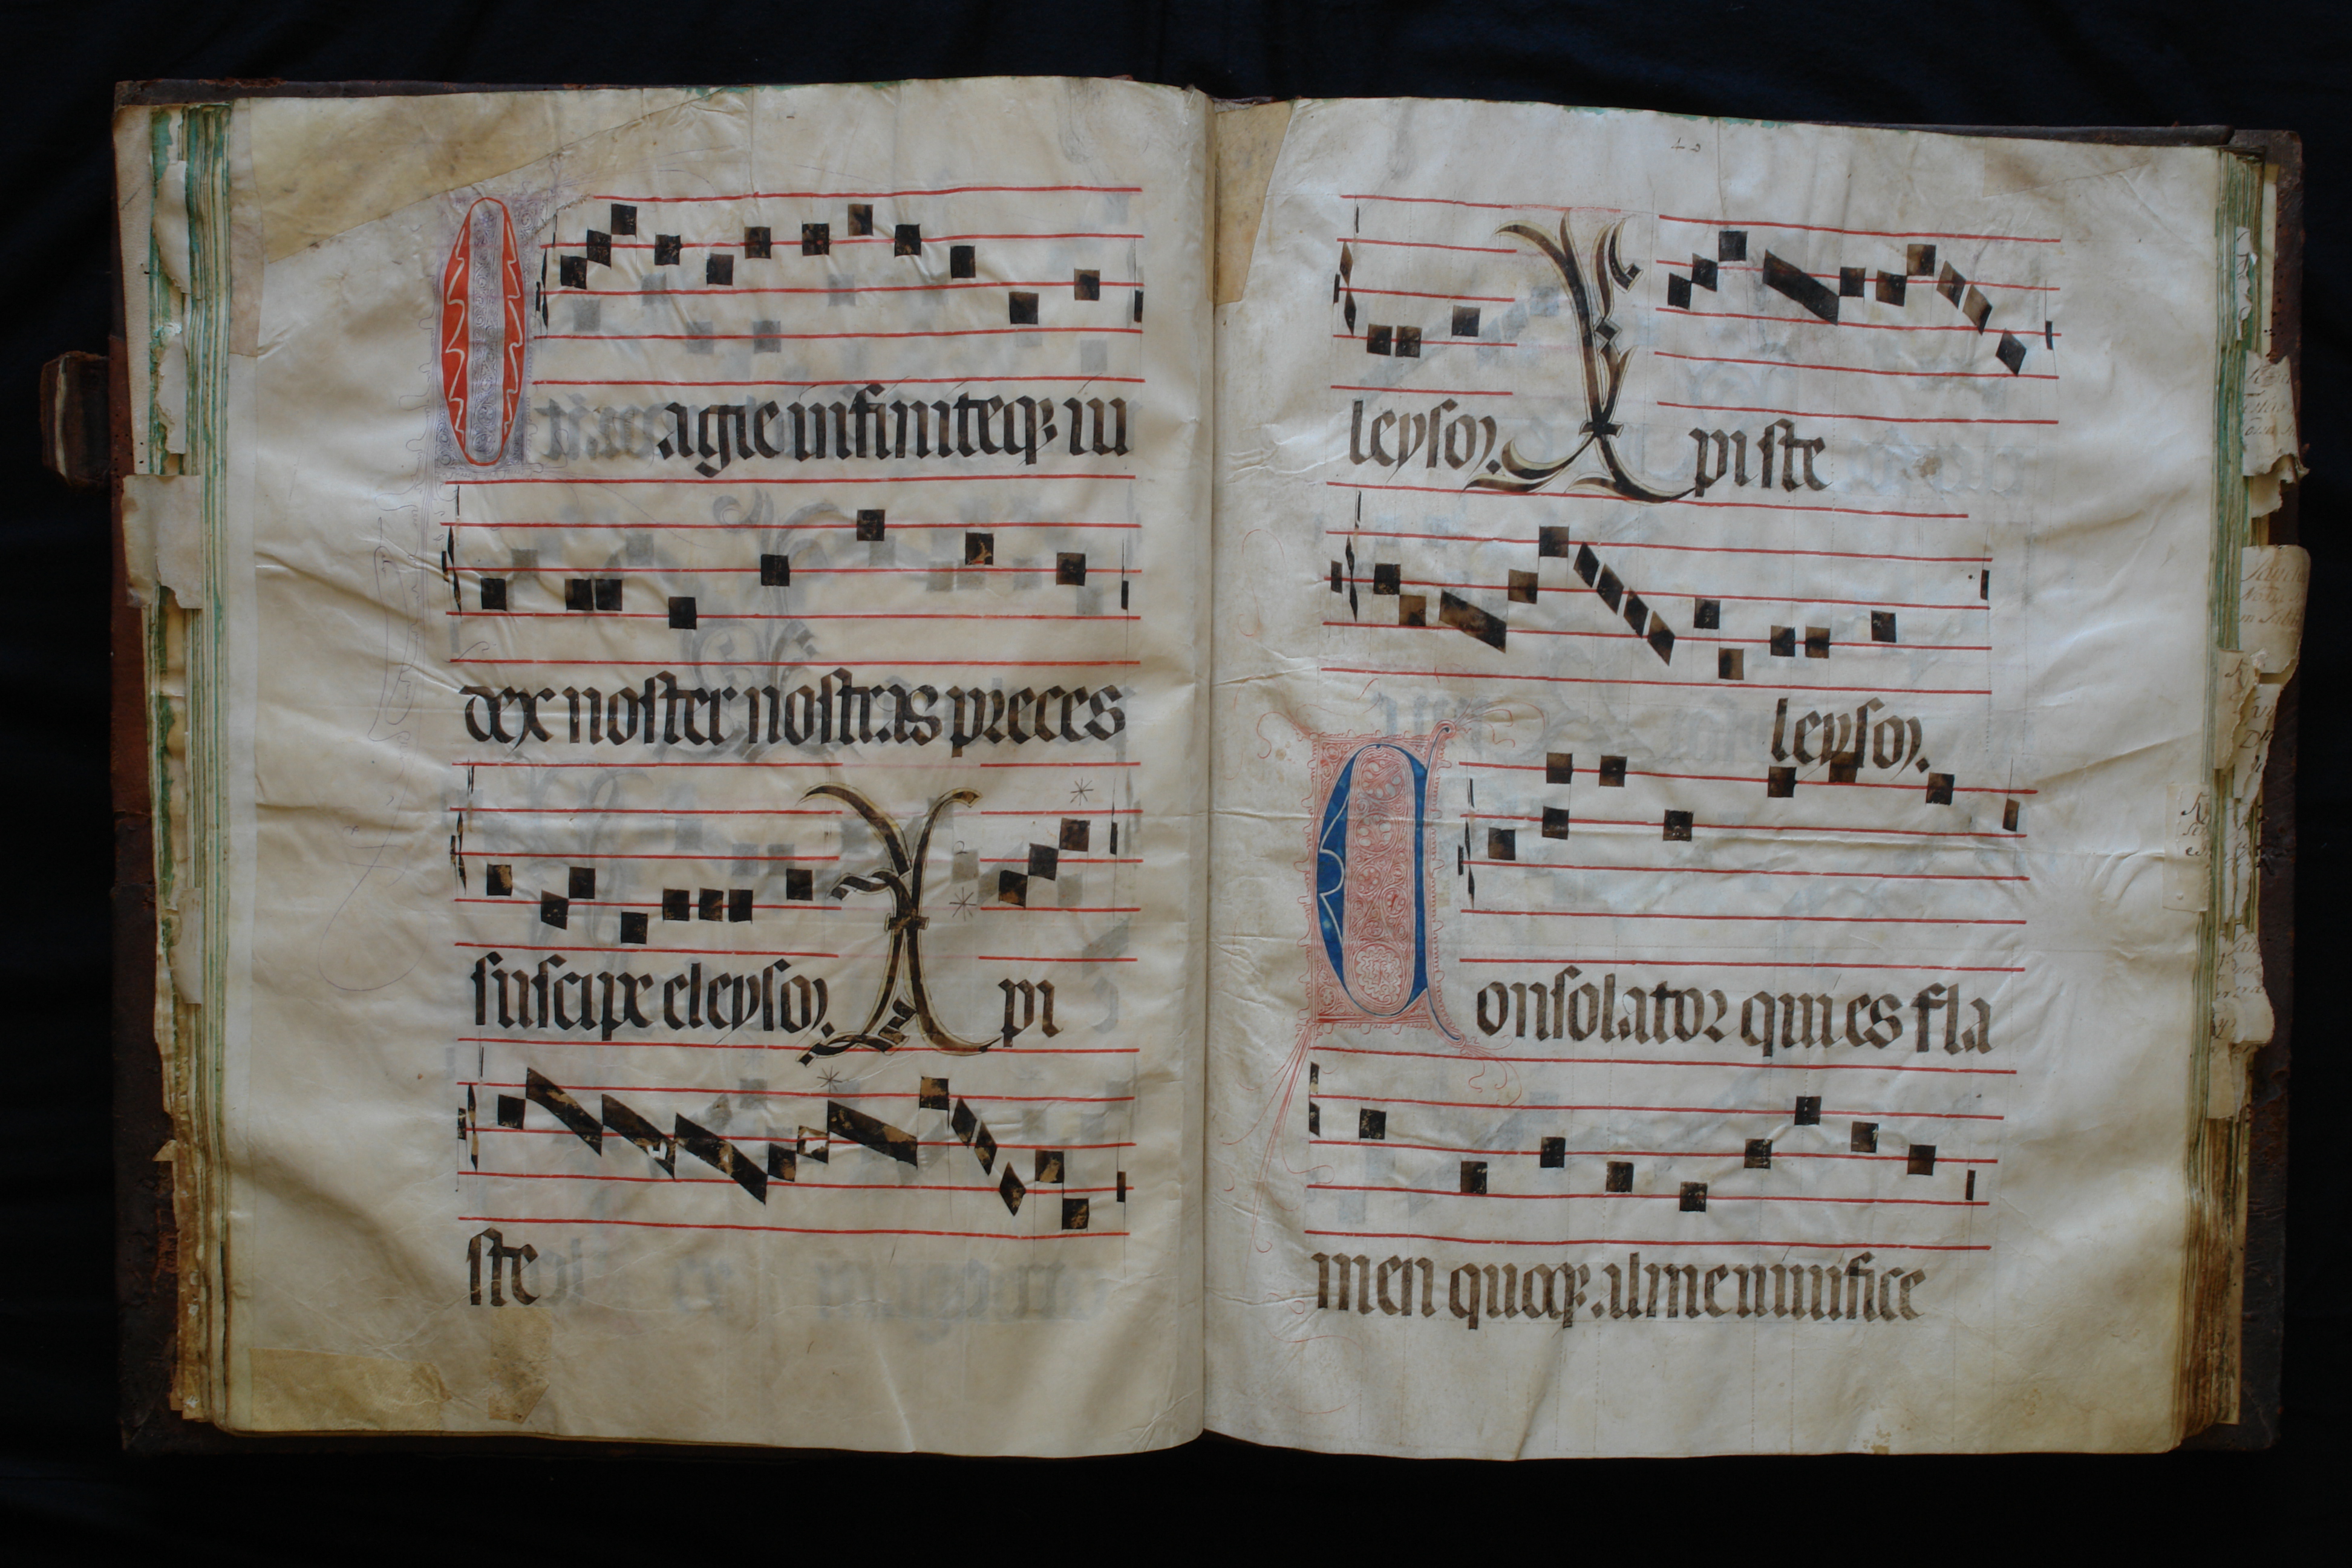 O agie infiniteqȝ iu
dex noster nostras preces
suscipe eleyson. Xpi
ste
40
leyson. Xpiste
leyson.
Consolator qui es fla
men quoqȝ alme munifice